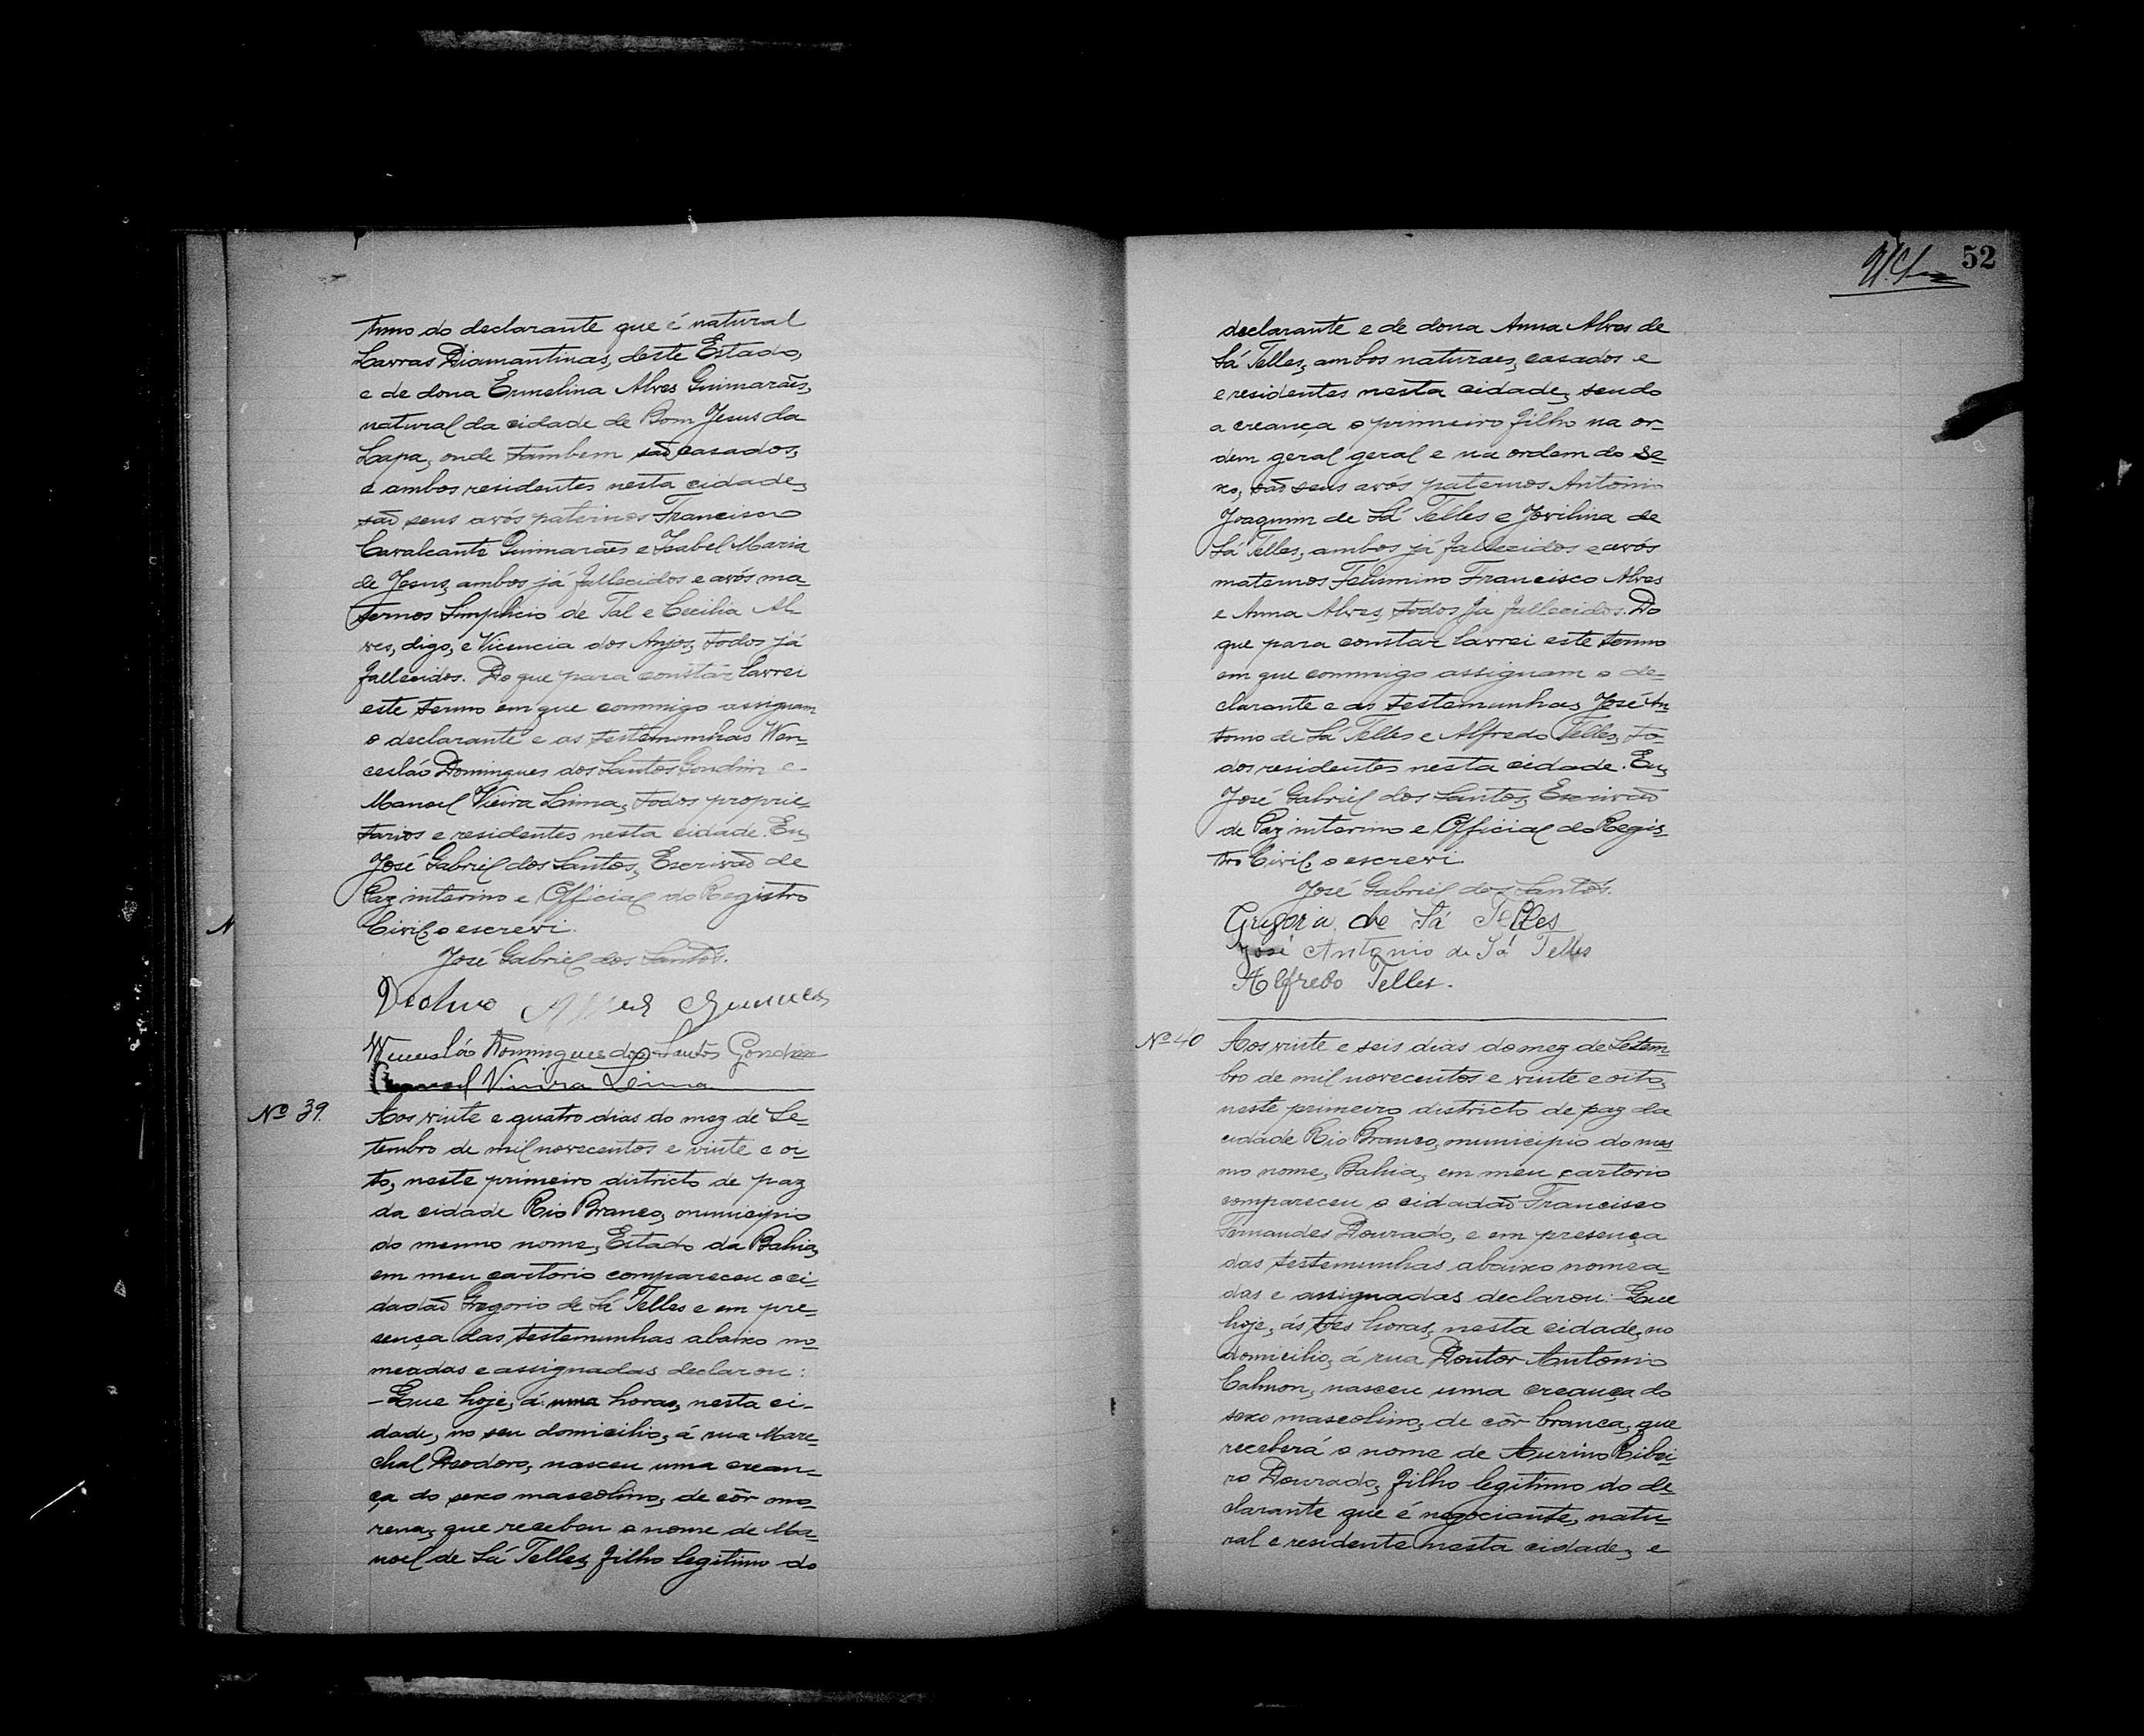 timo do declarante que é natural
Lavras Diamantinas, deste Estado,
e de dona Ermelina Alves Guimarães,
natural da cidade de Bom Jesus da
Lapa, onde tambem são casados,
e ambos residentes nesta cidade,
são seus avós paternos Francisco
Cavalcante Guimarães e Isabel Maria
de Jesus, ambos já fallecidos e avós ma-
ternos Simplicio de Tal e Cecilia Al-
ves, digo, e Vicencia dos Anjos, todos já
fallecidos. Do que para constar lavrei
este termo em que commigo assignam
o declarante e as testemunhas Wen-
ceslão Domingues dos Santos Gondim e
Manoel Vieira Lima, todos proprie-
tarios e residentes nesta cidade. Eu,
José Gabriel dos Santos, Escrivão de
Paz interino e Official do Registro
Civil, o escrevi.
José Gabriel dos Santos.
Wenceslão Domingues dos Santos Gondim
Manoel Vieira Lima
Nº 39.
Aos vinte e quatro dias do mez de Se-
tembro de mil novecentos e vinte e oi-
to, neste primeiro districto de paz
da cidade Rio Branco, municipio
do mesmo nome, Estado da Bahia,
em meu cartorio compareceu o ci-
dadão Gregorio de Sá Telles e em pre-
sença das testemunhas abaixo no-
meadas e assignadas declarou:
– Que hoje, á uma horas, nesta ci-
dade, no seu domicilio, á rua Mare-
chal Deodoro, nasceu uma crean-
ça do sexo mascolino, de côr mo-
rena, que recebeu o nome de Ma-
noel de Sá Telles, filho legitimo do
52
declarante e de dona Anna Alves de
Sá Telles, ambos naturaes, casados e
e residentes nesta cidade, sendo
a creança o primeiro filho na or-
dem geral geral e na ordem do se-
xo, são seus avos paternos Antonio
Joaquim de Sá Telles e Jovilina de
Sá Telles, ambos já fallecidos e avós
maternos Felismino Francisco Alves
e Anna Alves, todos já fallecidos. Do
que para constar lavrei este termo
em que commigo assignam o de-
clarante e as testemunhas José An-
tonio de Sá Telles e Alfredo Telles, to-
dos residentes nesta cidade. Eu,
José Gabriel dos Santos, Escrivão
de Paz interino e Official do Regis-
tro Civil, o escrevi.
José Gabriel dos Santos.
Gregorio de Sá Telles
José Antonio de Sá Telles
Alfredo Telles.
Nº 40
Aos vinte e seis dias do mez de Setem-
bro de mil novecentos e vinte e oito,
neste primeiro districto de paz da
cidade Rio Branco, municipio do mes-
mo nome, Bahia, em meu cartorio
compareceu o cidadão Francisco
Fernandes Dourado, e em presença
das testemunhas abaixo nomea-
das e assignadas declarou: – Que
hoje, ás tres horas, nesta cidade, no
domicilio, á rua Doutor Antonio
Calmon, nasceu uma creança do
sexo mascolino, de côr branca, que
receberá o nome de Aurino Ribei-
ro Dourado, filho legitimo do de-
clarante que é negociante, natu-
ral e residente nesta cidade, e